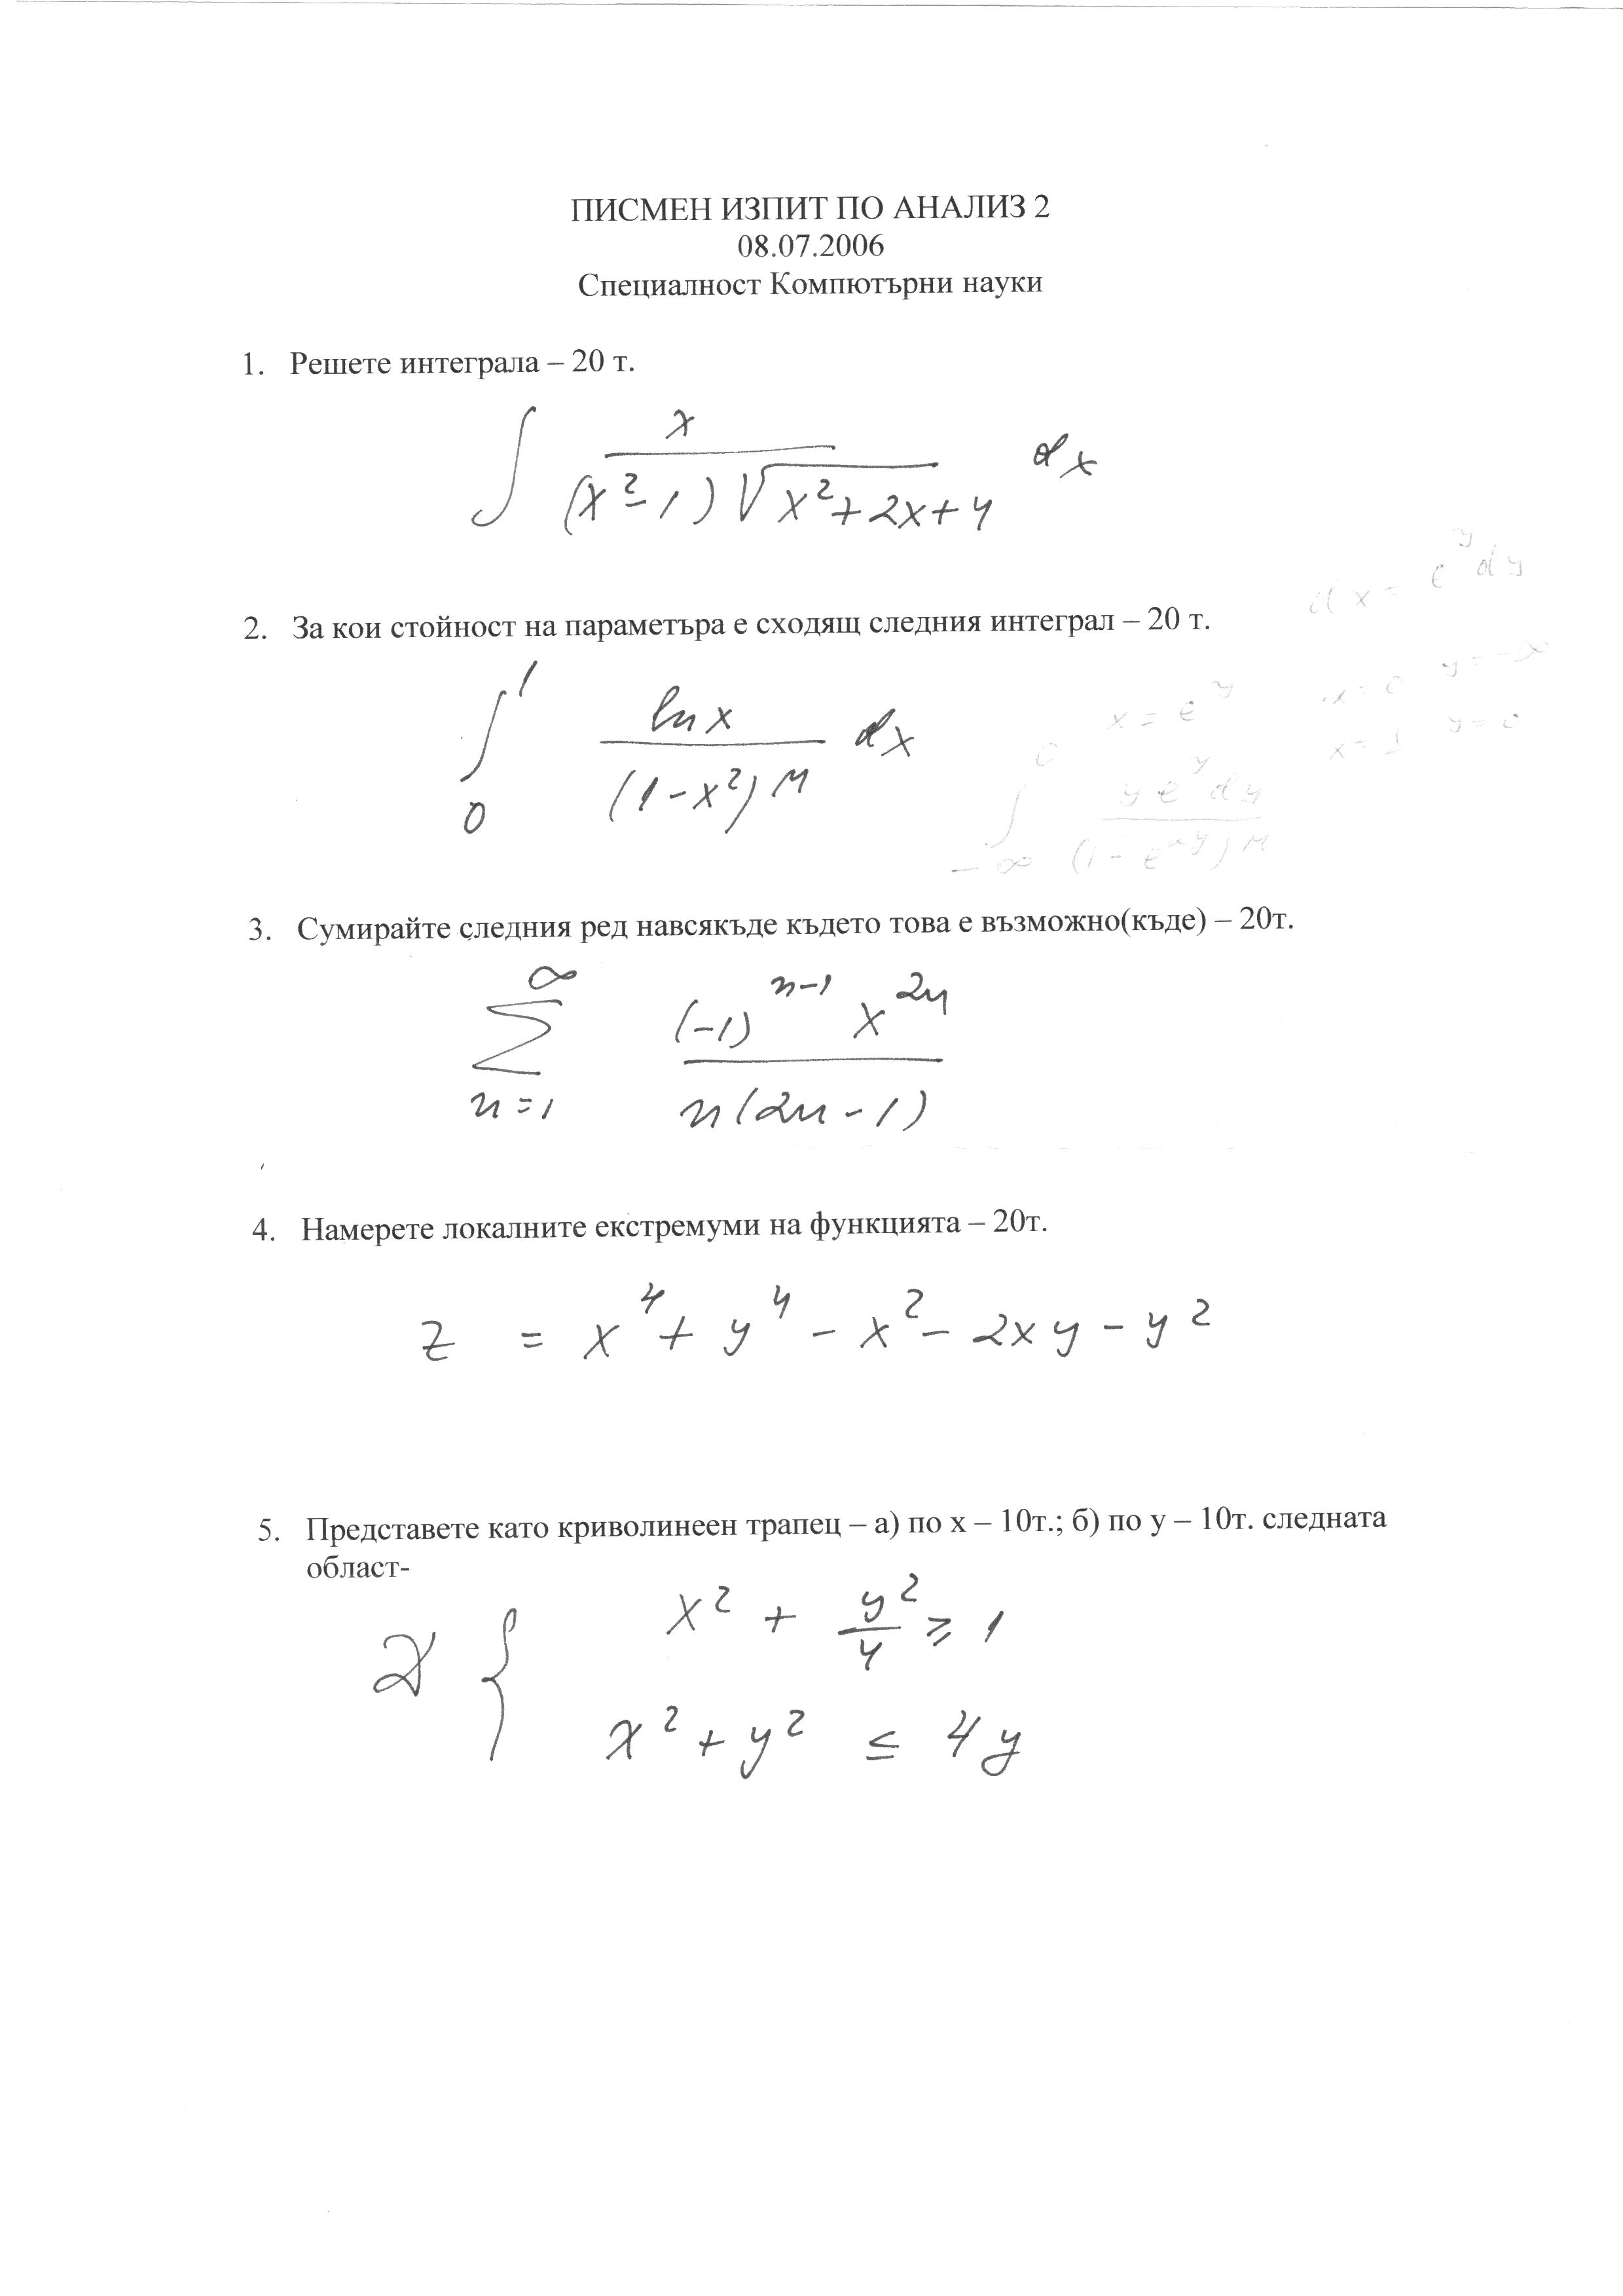 ПИСМЕН ИЗПИТ ПО АНАЛИЗ 2
08.07.2006
Специалност Компютърни науки
1. Решете интеграла – 20 т.
∫ x / ((x²-1)√(x²+2x+4)) dx
dx = e^y dy
2. За кои стойност на параметъра е сходящ следния интеграл – 20 т.
∫₀¹ ln x / (1-x²)^м dx
x = e^y x=0 y=-∞
x=1 y=0
∫_{-∞}^0 y e^y dy / (1-e^{2y})^м
3. Сумирайте следния ред навсякъде където това е възможно(къде) – 20т.
∑_{n=1}^∞ (-1)^{n-1} x^{2n} / n(2n-1)
4. Намерете локалните екстремуми на функцията – 20т.
z = x⁴ + y⁴ - x² - 2xy - y²
5. Представете като криволинеен трапец – а) по x – 10т.; б) по y – 10т. следната
област-
D { x² + y²/4 ≥ 1
x² + y² ≤ 4y